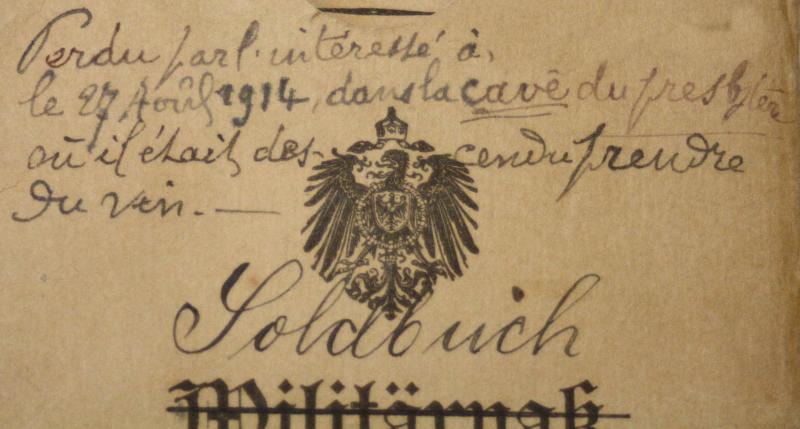 Perdu par l'intéressé à,
le 27 Août 1914, dans la cave du presbytère
où il était des- cendu prendre
du vin. —
Soldbuch
Militärpaß